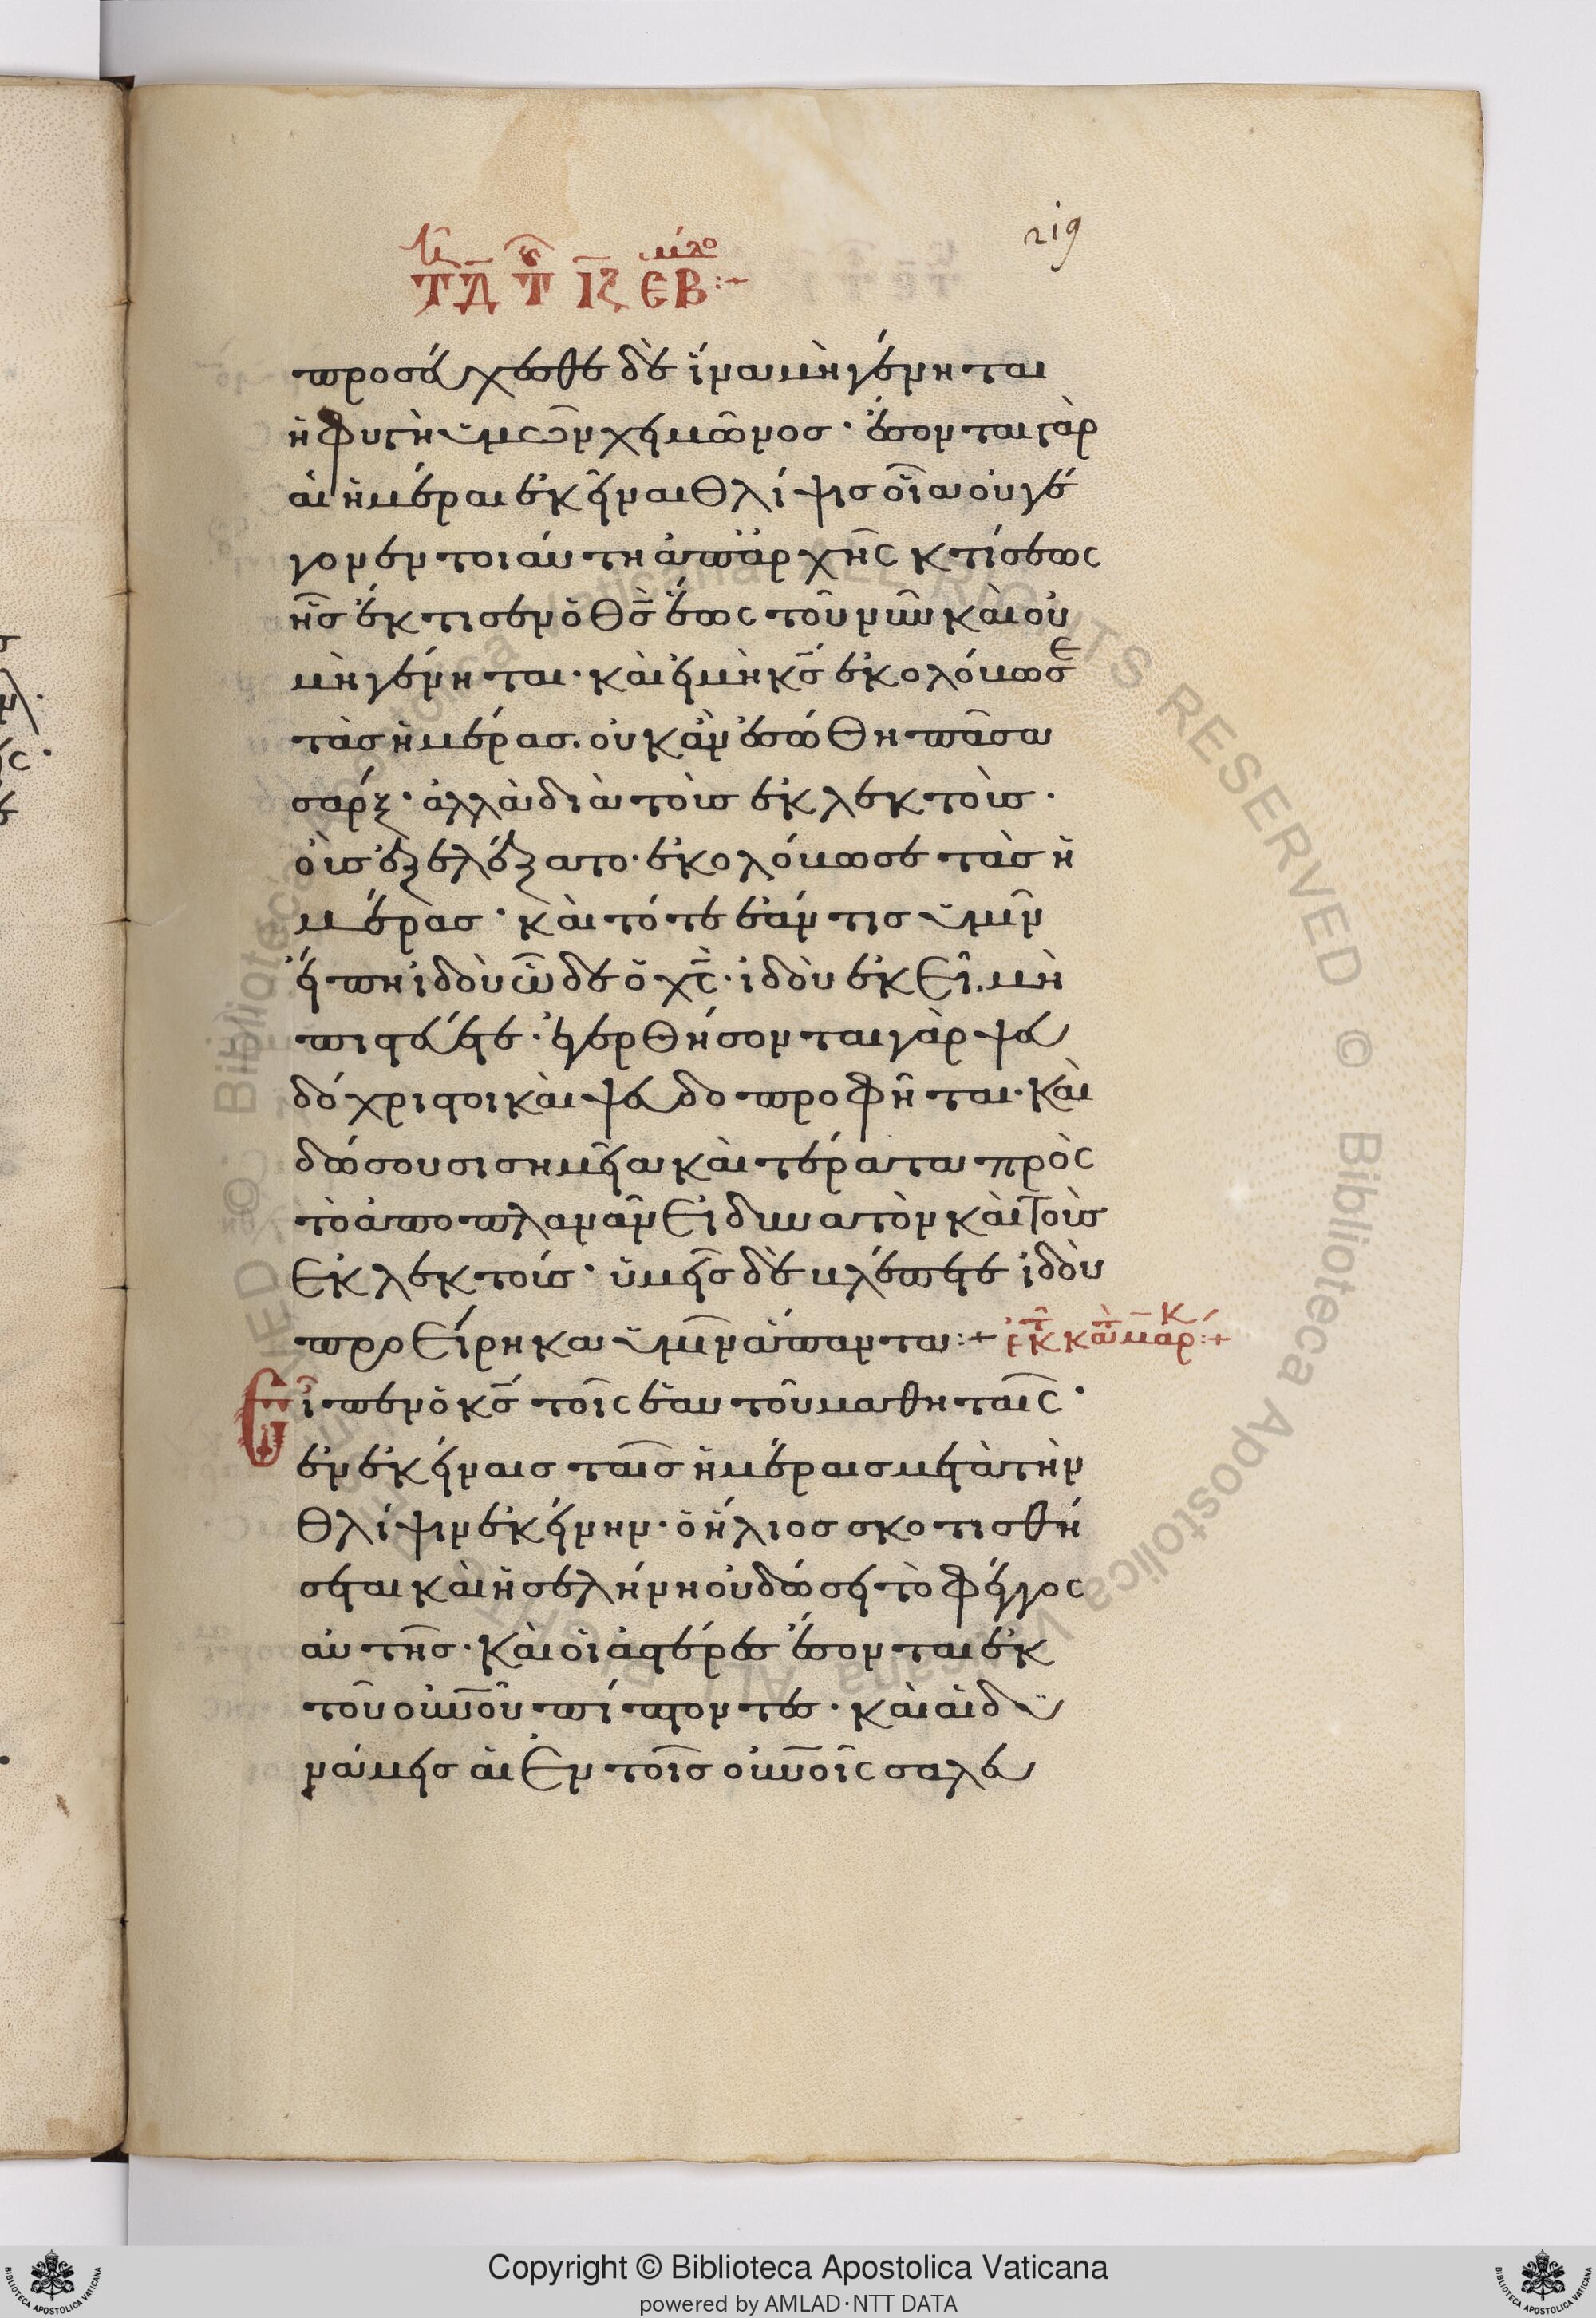 219
προσεύχεσθε δὲ ἵνα μὴ γένηται
ἡ φυγὴ ὑμῶν χειμῶνος· ἔσονται γὰρ
αἱ ἡμέραι ἐκεῖναι θλίψις οἵα οὐ γέ
γονεν τοιαύτη ἀπαρχῆς κτίσεως
ἧς ἔκτισεν ὁ θς ἕως τοῦ νῦν καὶ οὐ
μὴ γένηται· καὶ εἰ μὴ κς ἐκολόβωσε
τὰς ἡμέρας. οὐκ ἂν ἐσώθη πᾶσα
σάρξ· ἀλλὰ διὰ τοὺς ἐκλεκτοὺς·
οὓς ἐξελέξατο· ἐκολόβωσε τὰς ἡ
μέρας· καὶ τότε ἐάν τις ὑμῖν
εἴπη ἰδοὺ ὧδε ὁ χς· ἰδοὺ ἐκεῖ. μὴ
πιστεύετε· ἐγερθήσονται γὰρ ψευ
δόχριστοι καὶ ψευδοπροφῆται· καὶ
δώσουσι σημεῖα καὶ τέρατα πρὸς
τὸ ἀποπλανᾶν εἰ δυνατὸν καὶ τοὺς
ἐκλεκτούς· ὑμεῖς δὲ βλέπετε ἰδοὺ
προείρηκα ὑμῖν ἅπαντα:+ ἐκ τ κατὰ μαρκ:+
Εἶπεν ὁ κς τοῖς ἑαυτοῦ μαθηταῖς·
ἐν ἐκείναις ταῖς ἡμέραις μετὰ τὴν
θλίψιν ἐκείνην· ὁ ἥλιος σκοτισθή
σεται καὶ ἡ σελήνη οὐ δώσει τὸ φέγγος
αὐτῆς· καὶ οἱ ἀστέρες ἔσονται ἐκ
τοῦ οὐνοῦ πίπτοντες· καὶ αἱ δυ
νάμεις αἱ ἐν τοῖς οὐνοῖς σαλευ
Copyright © Biblioteca Apostolica Vaticana
powered by AMLAD·NTT DATA